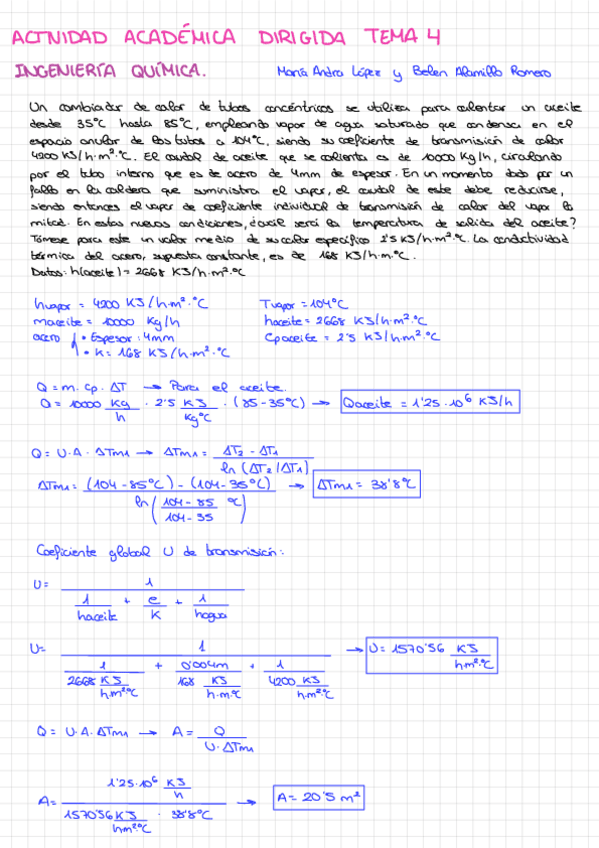 ACTIVIDAD ACADÉMICA DIRIGIDA TEMA 4
INGENIERÍA QUÍMICA. María Andra López y Belen Alamillo Romero
Un cambiador de calor de tubos concéntricos se utiliza para calentar un aceite
desde 35°C hasta 85°C, empleando vapor de agua saturado que condensa en el
espacio anular de los tubos a 104°C, siendo su coeficiente de transmisión de calor
4200 KJ/h·m²·°C. El caudal de aceite que se calienta es de 10000 Kg/h, circulando
por el tubo interno que es de acero de 4mm de espesor. En un momento dado por un
fallo en la caldera que suministra el vapor, el caudal de este debe reducirse,
siendo entonces el vapor de coeficiente individual de transmisión de calor del vapor la
mitad. En estas nuevas condiciones, ¿cuál será la temperatura de salida del aceite?
Tómese para este un valor medio de su calor específico 2'5 KJ/h·m²·°C. La conductividad
térmica del acero, supuesta constante, es de 168 KJ/h·m·°C.
Datos: h(aceite) = 2668 KJ/h·m²·°C
hvapor = 4200 KJ/h·m²·°C Tvapor = 104°C
maceite = 10000 Kg/h haceite = 2668 KJ/h·m²·°C
acero • Espesor: 4mm Cpaceite = 2'5 KJ/h·m²·°C
• K = 168 KJ/h·m²·°C
Q = m. cp. ΔT → Para el aceite.
Q = 10000 Kg/h · 2'5 KJ/Kg°C · (85-35°C) → Qaceite = 1'25·10⁶ KJ/h
Q = U·A·ΔTml → ΔTml = ΔT2 - ΔT1 / ln (ΔT2/ΔT1)
ΔTml = (104-85°C) - (104-35°C) / ln (104-85 / 104-35 °C) → ΔTml = 38'8°C
Coeficiente global U de transmisión:
U = 1 / (1/haceite + e/K + 1/hagua)
U = 1 / (1/2668 KJ/h·m²·°C + 0'004m/168 KJ/h·m·°C + 1/4200 KJ/h·m²·°C) → U = 1570'56 KJ/h·m²·°C
Q = U·A·ΔTml → A = Q / U·ΔTml
A = 1'25·10⁶ KJ/h / 1570'56 KJ/hm²·°C · 38'8°C → A = 20'5 m²